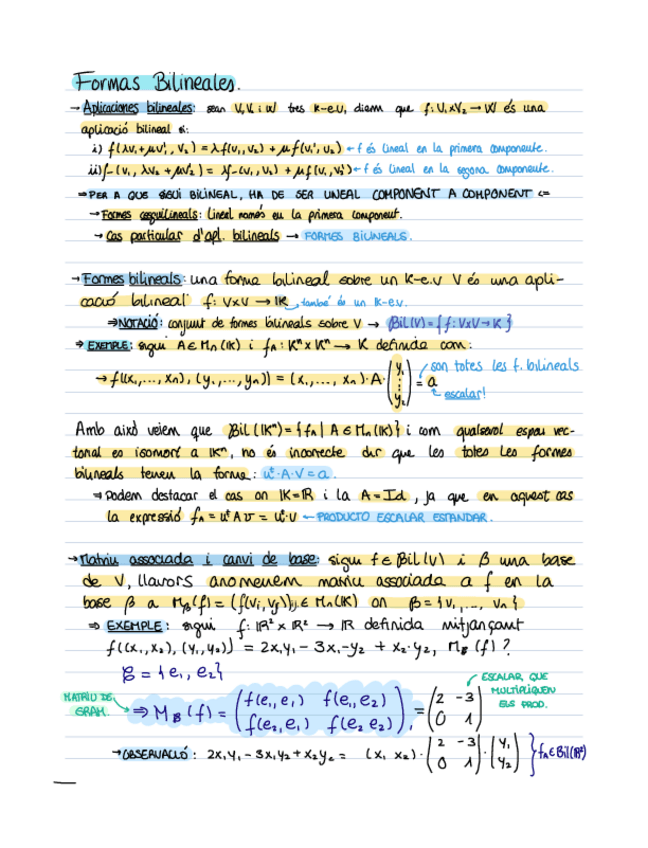 Formas Bilineales.
→ Aplicaciones bilineales: sean V₁, V₂ i W tres K-e.v, diem que f: V₁×V₂ → W és una
aplicació bilineal si:
i) f(λv₁+μv₁', v₂) = λf(v₁,v₂) + μf(v₁',v₂) ← f és lineal en la primera componente.
ii) f(v₁, λv₂+μv₂') = λf(v₁,v₂) + μf(v₁,v₂') ← f és lineal en la segona componente.
⇒ PER A QUE SIGUI BILINEAL, HA DE SER LINEAL COMPONENT A COMPONENT ⇐
→ Formes sesquilineals: lineal només en la primera component.
→ Cas particular d'apl. bilineals → FORMES BILINEALS.
→ Formes bilineals: una forma bilineal sobre un K-e.v V és una apli-
cació bilineal f: V×V → IK també és un K-e.v.
⇒ NOTACIÓ: conjunt de formes bilineals sobre V → Bil(V) = { f: V×V→K }
⇒ EXEMPLE: sigui A∈Mn(IK) i fA: Kⁿ×Kⁿ → K definida com:
→ f((x₁,..., xn), (y₁,..., yn)) = (x₁,..., xn)·A·(y₁ ⋮ y₂) = a
son totes les f. bilineals
escalar!
Amb això veiem que Bil(IKⁿ) = { fA | A∈Mn(IK) } i com qualsevol espai vec-
torial es isomorf a IKⁿ, no és incorrecte dir que les totes les formes
bilineals tenen la forma: uᵗ·A·V = a.
⇒ Podem destacar el cas on IK=IR i la A=Id, ja que en aquest cas
la expressió fA = uᵗAv = uᵗ·v ← PRODUCTO ESCALAR ESTANDAR.
→ Matriu associada i canvi de base: sigui f∈Bil(V) i β una base
de V, llavors anomenem matriu associada a f en la
base β a Mβ(f) = (f(vi,vj))ij ∈ Mn(IK) on β={v₁,..., vn}
⇒ EXEMPLE: sigui f: IR²×IR² → IR definida mitjançant
f((x₁,x₂), (y₁,y₂)) = 2x₁y₁ - 3x₁y₂ + x₂·y₂, Mβ(f)?
β = {e₁, e₂}
MATRIU DE GRAM.
⇒ Mβ(f) = (f(e₁,e₁) f(e₁,e₂) / f(e₂,e₁) f(e₂e₂)) = (2 -3 / 0 1)
ESCALAR QUE
MULTIPLIQUEN
ELS PROD.
→ OBSERVACIÓ: 2x₁y₁ - 3x₁y₂ + x₂y₂ = (x₁ x₂)·(2 -3 / 0 1)·(y₁ / y₂) } fA∈Bil(IR²)